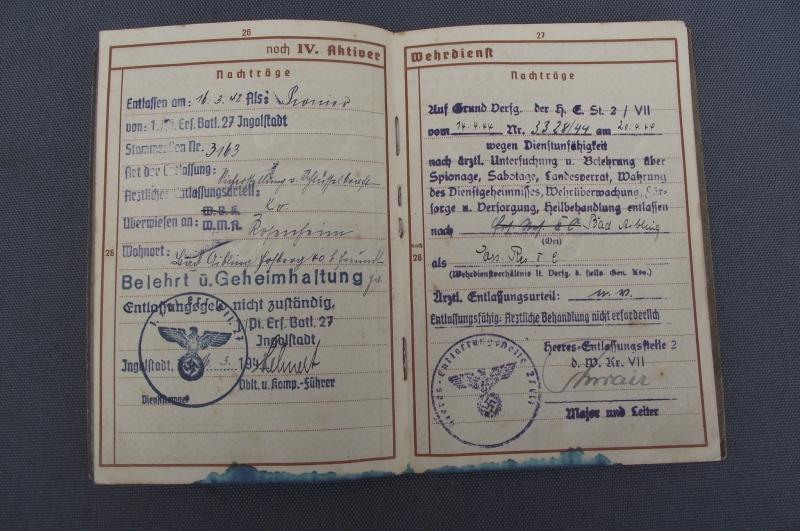 26
noch IV. Aktiver
Nachträge
Entlassen am: 16.3.42 Als: Pionier
von: 1./Pi. Ers. Batl. 27 Ingolstadt
Stammrollen Nr. 3163
Art der Entlassung: Sicherstellung v. Schlüsselkraft
Ärztlicher Entlassungsurteil: Kv
W.B.K.
Überwiesen an: W.M.A. Rosenheim
Wohnort:
26
Bad Aibling
Belehrt ü. Geheimhaltung
Entlassungsgeld nicht zuständig.
1./Pi. Ers. Batl. 27
Ingolstadt
Ingolstadt, 16.3. 194
Oblt. u. Komp.-Führer
Dienststempel
27
Wehrdienst
Nachträge
Auf Grund Verfg. der H. E. St. 2 / VII
vom 14.9.44 Nr. 3328/44 am 20.9.44
wegen Dienstunfähigkeit
nach ärztl. Untersuchung u. Belehrung über
Spionage, Sabotage, Landesverrat, Wahrung
des Dienstgeheimnisses, Wehrüberwachung, Für-
sorge u. Versorgung, Heilbehandlung entlassen
nach Bad Aibling
(Ort)
noch
26
als
(Wehrdienstverhältnis lt. Verfg. d. stellv. Gen. Kdo.)
Ärztl. Entlassungsurteil:
Entlassungsfähig. Ärztliche Behandlung nicht erforderlich
Heeres-Entlassungsstelle 2
d. W. Kr. VII
Heeres-Entlassungsstelle 2/VII
Major und Leiter